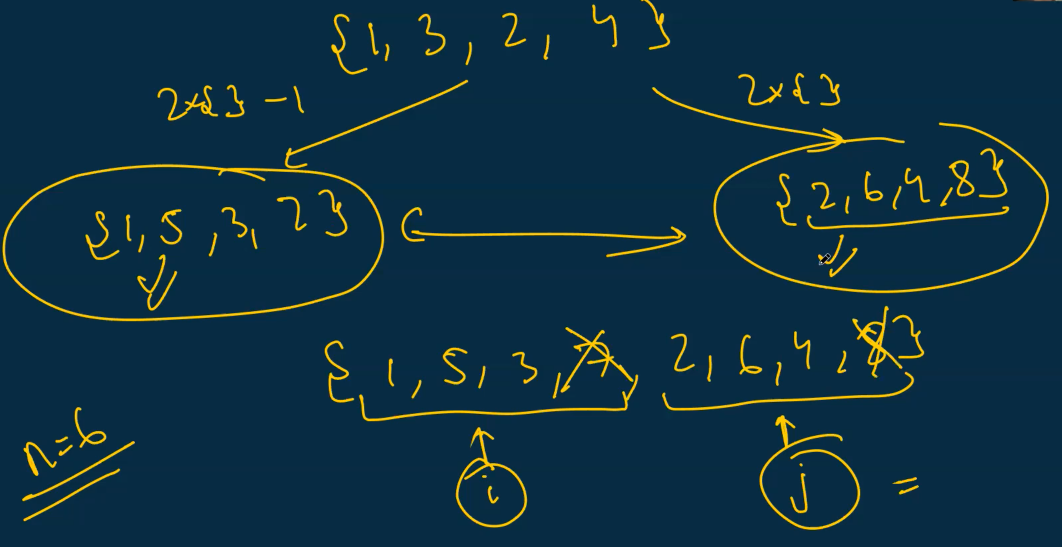 {1, 3, 2, 4}
2×{} -1
2×{}
{1, 5, 3, 7}
{2, 6, 4, 8}
{1, 5, 3, 7, 2, 6, 4, 8}
n=6
i
j =